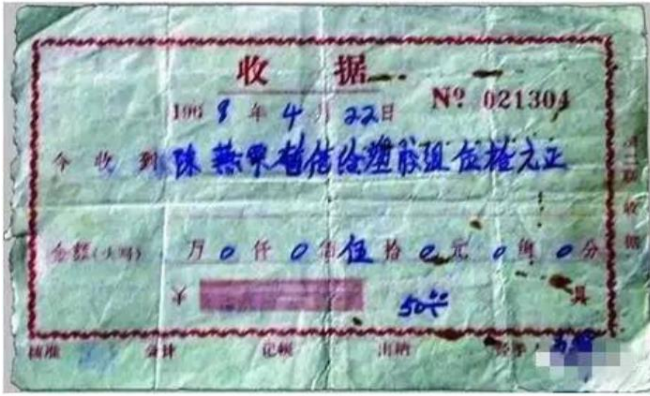 收 据
1968年4月22日 Nº 021304
今收到 陈燕 暂借给塑胶组伍拾元正
金额(大写) 万0仟0佰伍拾0元0角0分
¥ 50.00 具
核准 会计 记帐 出纳 经手人
第二联收据